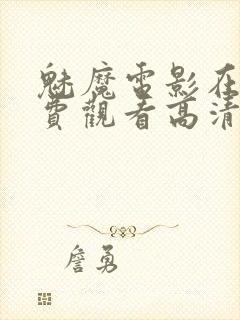 魅魔电影在
費觀看高清
詹勇